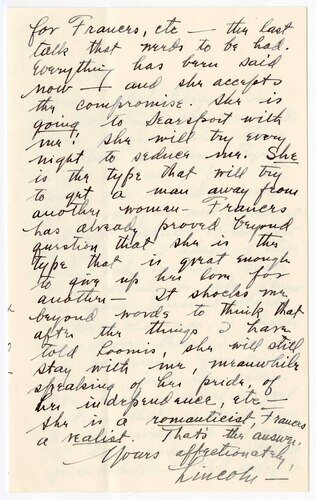 for Frances, etc — the last
talk that needs to be had.
Everything has been said
now — and she accepts
the compromise. She is
going to Searsport with
me! She will try every
night to seduce me. She
is the type that will try
to get a man away from
another woman — Frances
has already proved beyond
question that she is the
type that is great enough
to give up her love for
another — It shocks me
beyond words to think that
after the things I have
told Loomis, she will still
stay with me, meanwhile
speaking of her pride, of
her independence, etc —
she is a romanticist, Frances
a realist. That's the answer.
Yours affectionately,
Lincoln —